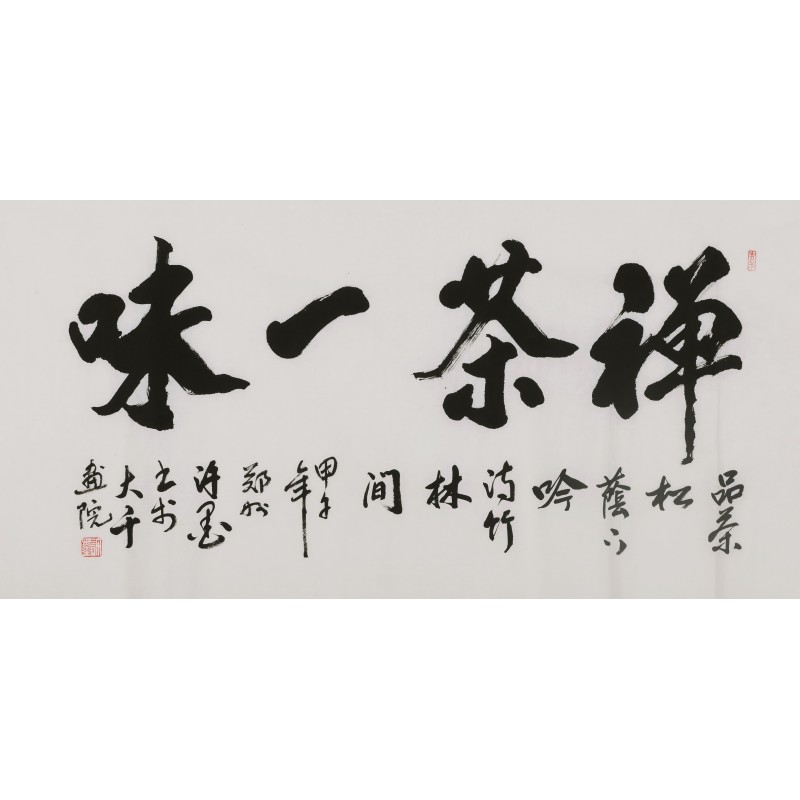 禅茶一味
品茶
松
蔭下
吟
詩竹
林
间
甲午
年
郑州
许墨
书于
大千
画院